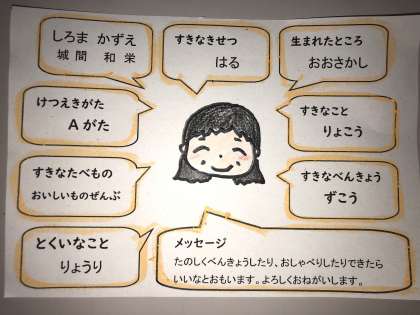 しろま かずえ
城間 和栄
すきなきせつ
はる
生まれたところ
おおさかし
けつえきがた
Aがた
すきなこと
りょこう
すきなたべもの
おいしいものぜんぶ
すきなべんきょう
ずこう
とくいなこと
りょうり
メッセージ
たのしくべんきょうしたり、おしゃべりしたりできたら
いいなとおもいます。よろしくおねがいします。